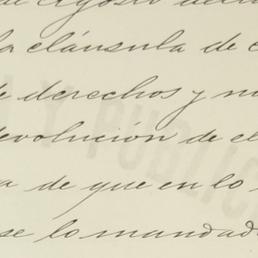 de Agosto
la cláusula de c
de derechos y n
devolución de el
a de que en lo
se lo mandad